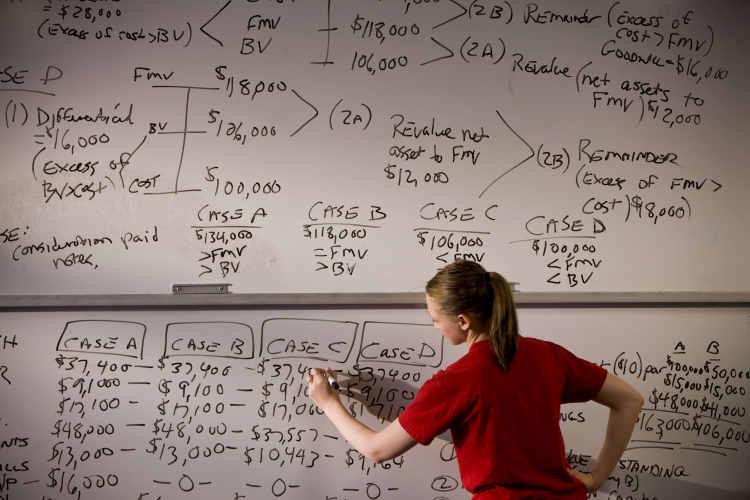 = $28,000
(Excess of cost > BV)
<
FMV
BV
$118,000
106,000
(2B) Remainder (Excess of
cost > FMV)
GOODWILL = $16,000
(2A) Revalue (net assets to
FMV) $12,000
SE D
(1) Differential
= $16,000
(Excess of
BV > cost)
FMV $118,000
BV $106,000
COST $100,000
(2A)
REvalue net
asset to FMV
$12,000
(2B) REMAINDER
(Excess of FMV >
cost) $18,000)
SE:
consideration paid
notes,
CASE A
$134,000
> FMV
> BV
CASE B
$118,000
= FMV
> BV
CASE C
$106,000
< FMV
CASE D
$100,000
< FMV
< BV
CASE A CASE B CASE C CASE D
$37,400 — $37,400 — $37,4 $37,400
$9,100 — $9,100 — $9,1
$17,100 — $17,100 — $17,0
$48,000 — $48,000 — $37,557 —
$13,000 — $13,000 — $10,443 — $9,164
$16,000 — 0 — — 0 — — 0 —
NTS
ALLS
($10) par
A B
$100,000 $50,000
$15,000 $15,000
$48,000 $41,000
163,000 $106,000
NGS
STANDING
B)
(2)